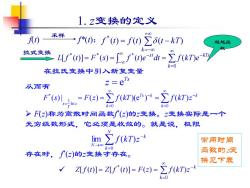 1. z变换的定义
采样
f(t) → f*(t): f*(t) = f(t) ∑_{k=-∞}^{∞} δ(t − kT)
拉式变换
L[f*(t)] = F*(s) = ∫_{-∞}^{∞} f*(t)e^{-st}dt = ∑_{k=0}^{∞} f(kT)e^{-kTs}
在拉氏变换中引入新复变量
z = e^{Ts}
从而有
F*(s)|_{s=\frac{1}{T}\ln z} = F(z) = ∑_{k=0}^{∞} f(kT)(e^{Ts})^{-k} = ∑_{k=0}^{∞} f(kT)z^{-k}
➢ F(z)称为离散时间函数f*(t)的z变换。z变换实际是一个
无穷级数形式，它必须是收敛的。就是说，极限
lim_{N→∞} ∑_{k=0}^{N} f(kT)z^{-k}
存在时，f*(t)的z变换才存在。
常用时间
函数的z变
换见下表
✓ Z[f(t)] = Z[f*(t)] = F(z) = ∑_{k=0}^{∞} f(kT)z^{-k}